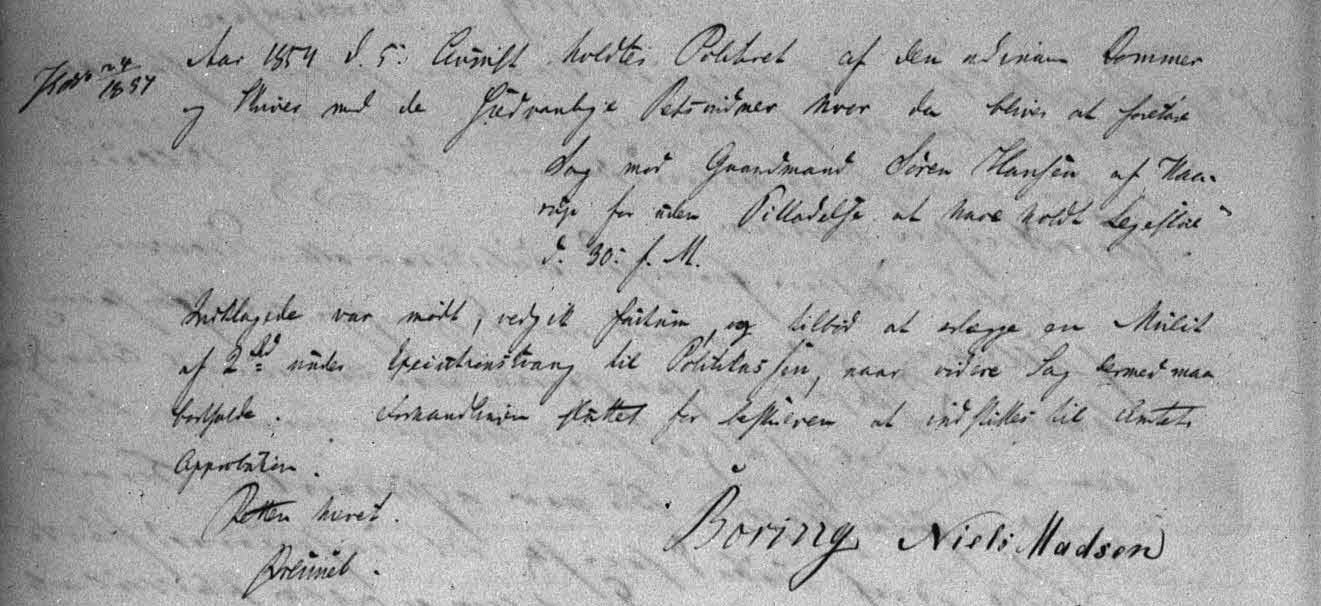 Aar 1854 d. 5. August holdtes Politiret af den ordinaire Dommer
og Skriver med de sædvanlige Retsvidner hvor da blev at foretage
Sag mod Gaardmand Sören Hansen af Kaa-
rup for uden Tilladelse at have holdt Legestue
d. 30. f. M.
Indklagede var mödt, vedgik factum, og tilböd at erlægge en Mulct
af 2 rd under Executionstvang til Politikassen, naar videre Sag dermed maa
bortfalde. Forhandlingen sluttet for beskreven at indstilles til Amtets
Approbation.
Retten hævet.
Preüul.
Boring Niels Madsen